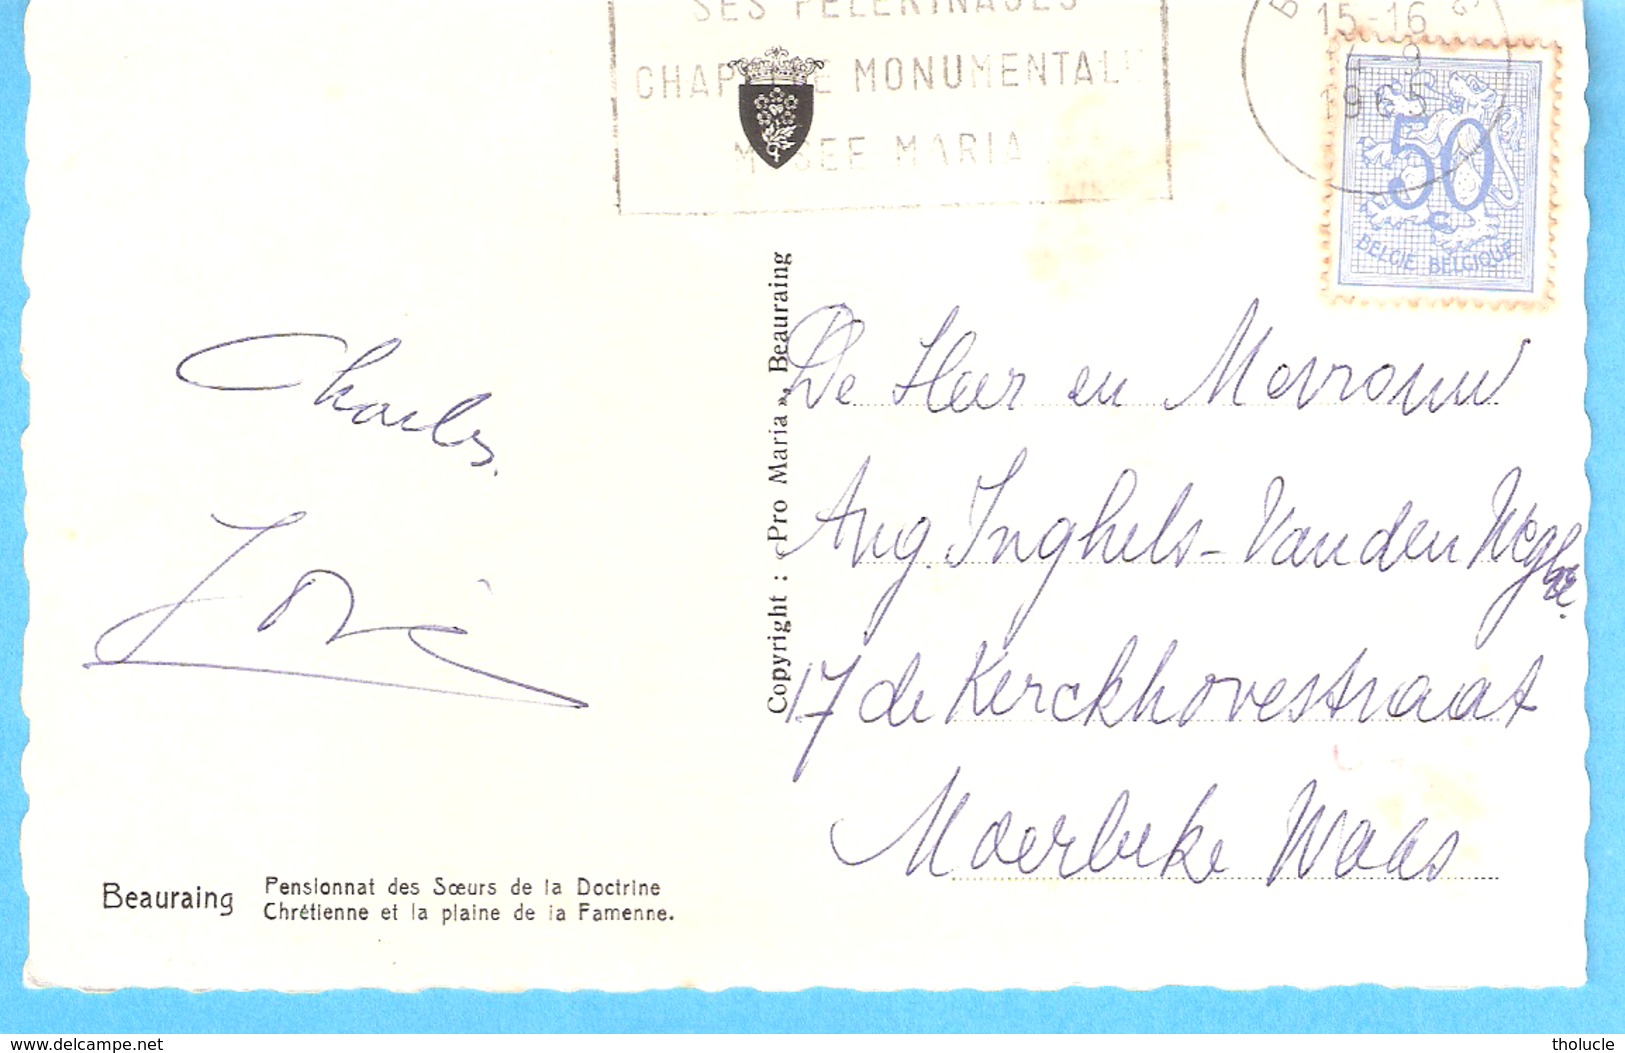 SES PELERINAGES
CHAPELLE MONUMENTALE
MUSEE MARIAL
15-16
4-9
1965
50
c
BELGIE BELGIQUE
Charles.
Copyright : «Pro Maria», Beauraing
De Heer en Mevrouw
Aug. Inghels-Vanden Weghe.
17 de Kerckhovestraat
Moerbeke Waas
Beauraing
Pensionnat des Sœurs de la Doctrine
Chrétienne et la plaine de la Famenne.
www.delcampe.net
tholucle